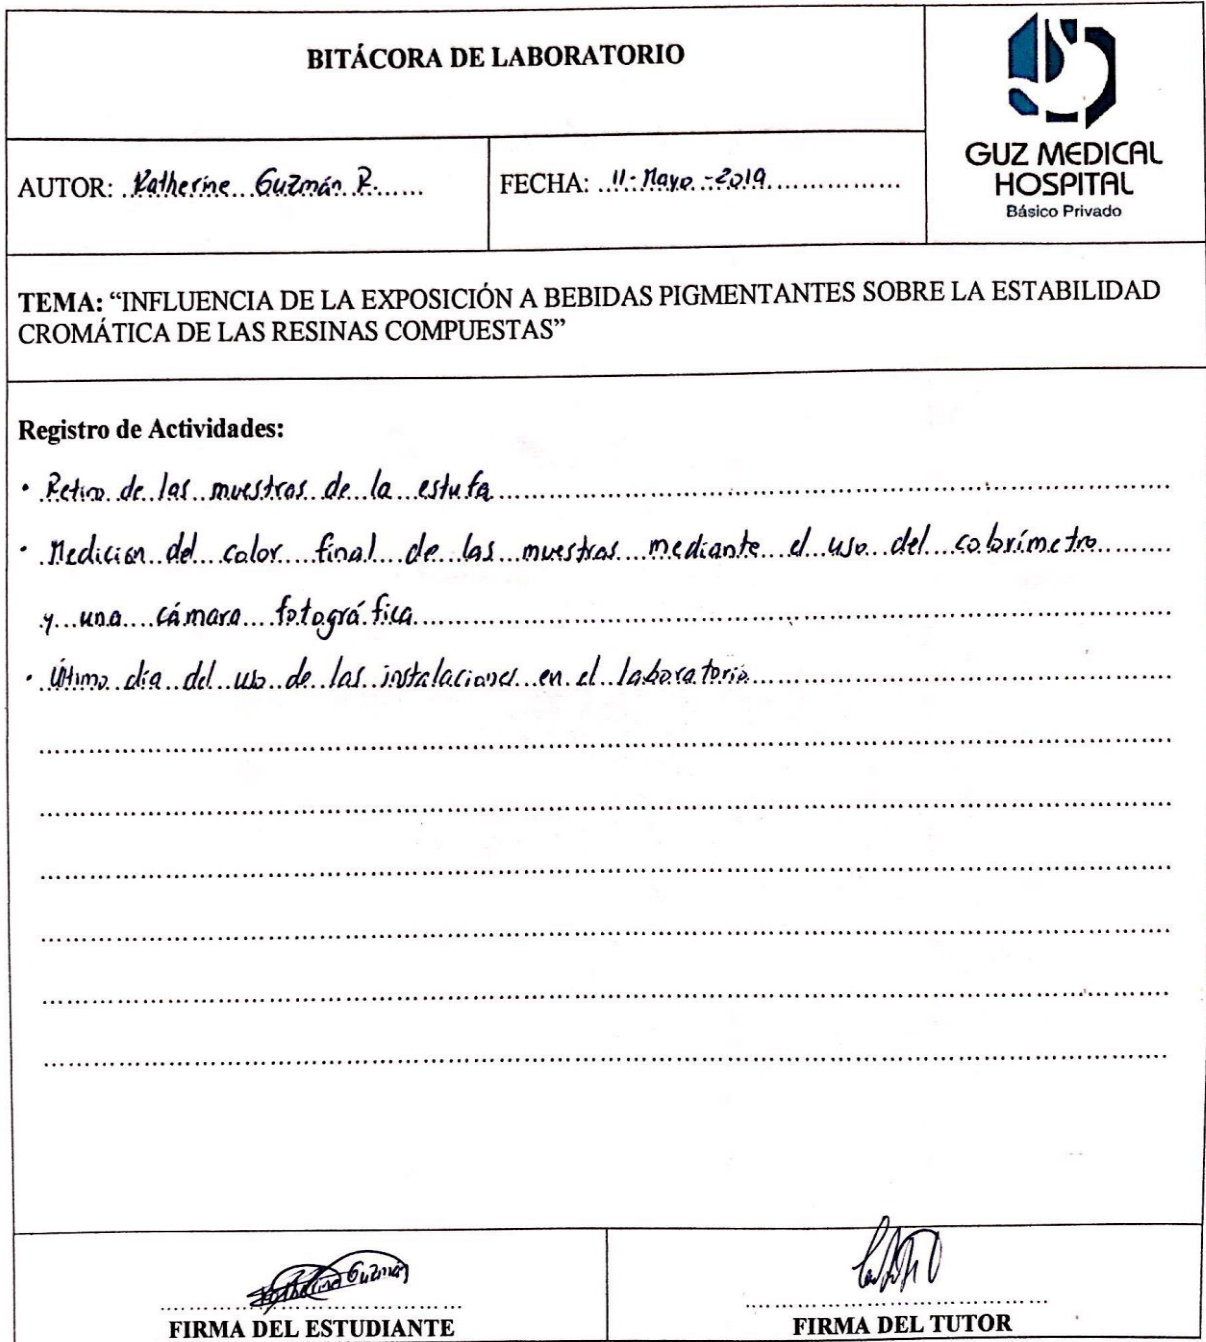 BITÁCORA DE LABORATORIO
GUZ MEDICAL
HOSPITAL
Básico Privado
AUTOR: Katherine Guzmán R.
FECHA: 11-Mayo-2019
TEMA: “INFLUENCIA DE LA EXPOSICIÓN A BEBIDAS PIGMENTANTES SOBRE LA ESTABILIDAD
CROMÁTICA DE LAS RESINAS COMPUESTAS”
Registro de Actividades:
· Retiro de las muestras de la estufa
· Medicion del color final de las muestras mediante el uso del colorímetro
y una cámara fotográfica
· Último día del uso de las instalaciones en el laboratorio
Katherine Guzmán
FIRMA DEL ESTUDIANTE
FIRMA DEL TUTOR